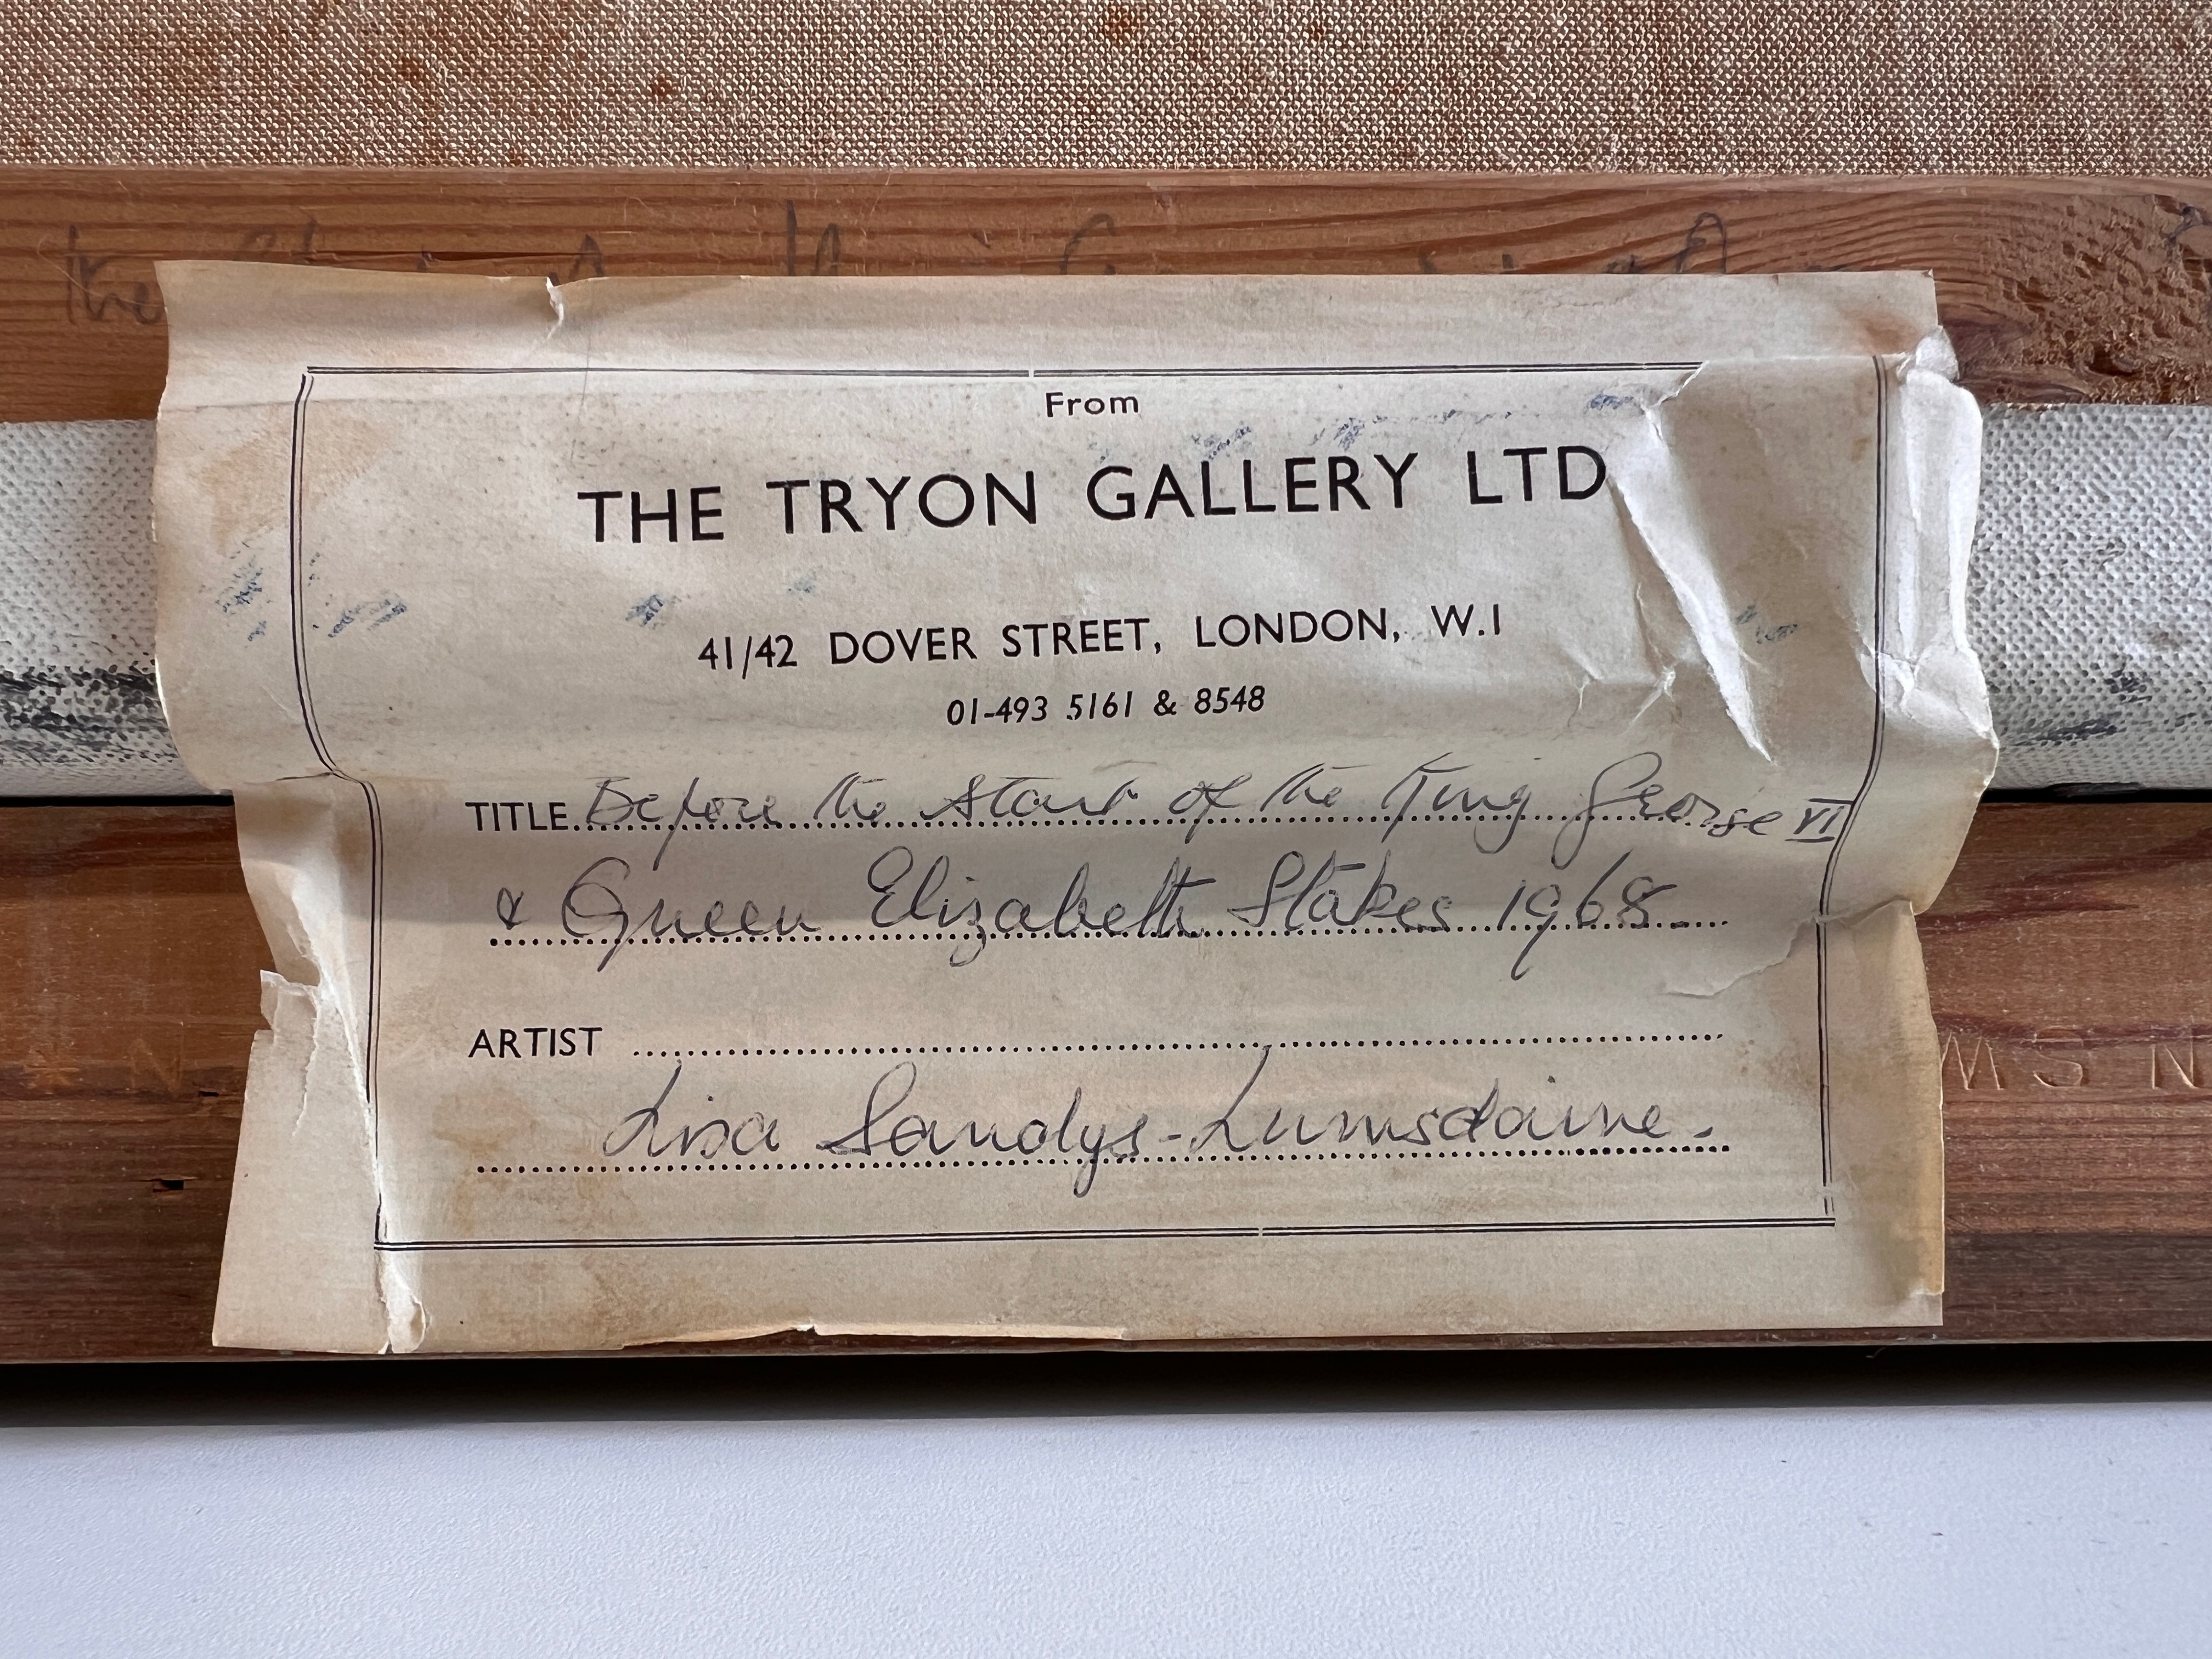 the
From
THE TRYON GALLERY LTD
41/42 DOVER STREET, LONDON, W.1
01-493 5161 & 8548
TITLE Before the Start of the King George VI
& Queen Elizabeth Stakes 1968
ARTIST
Lisa Sandys-Lumsdaine.